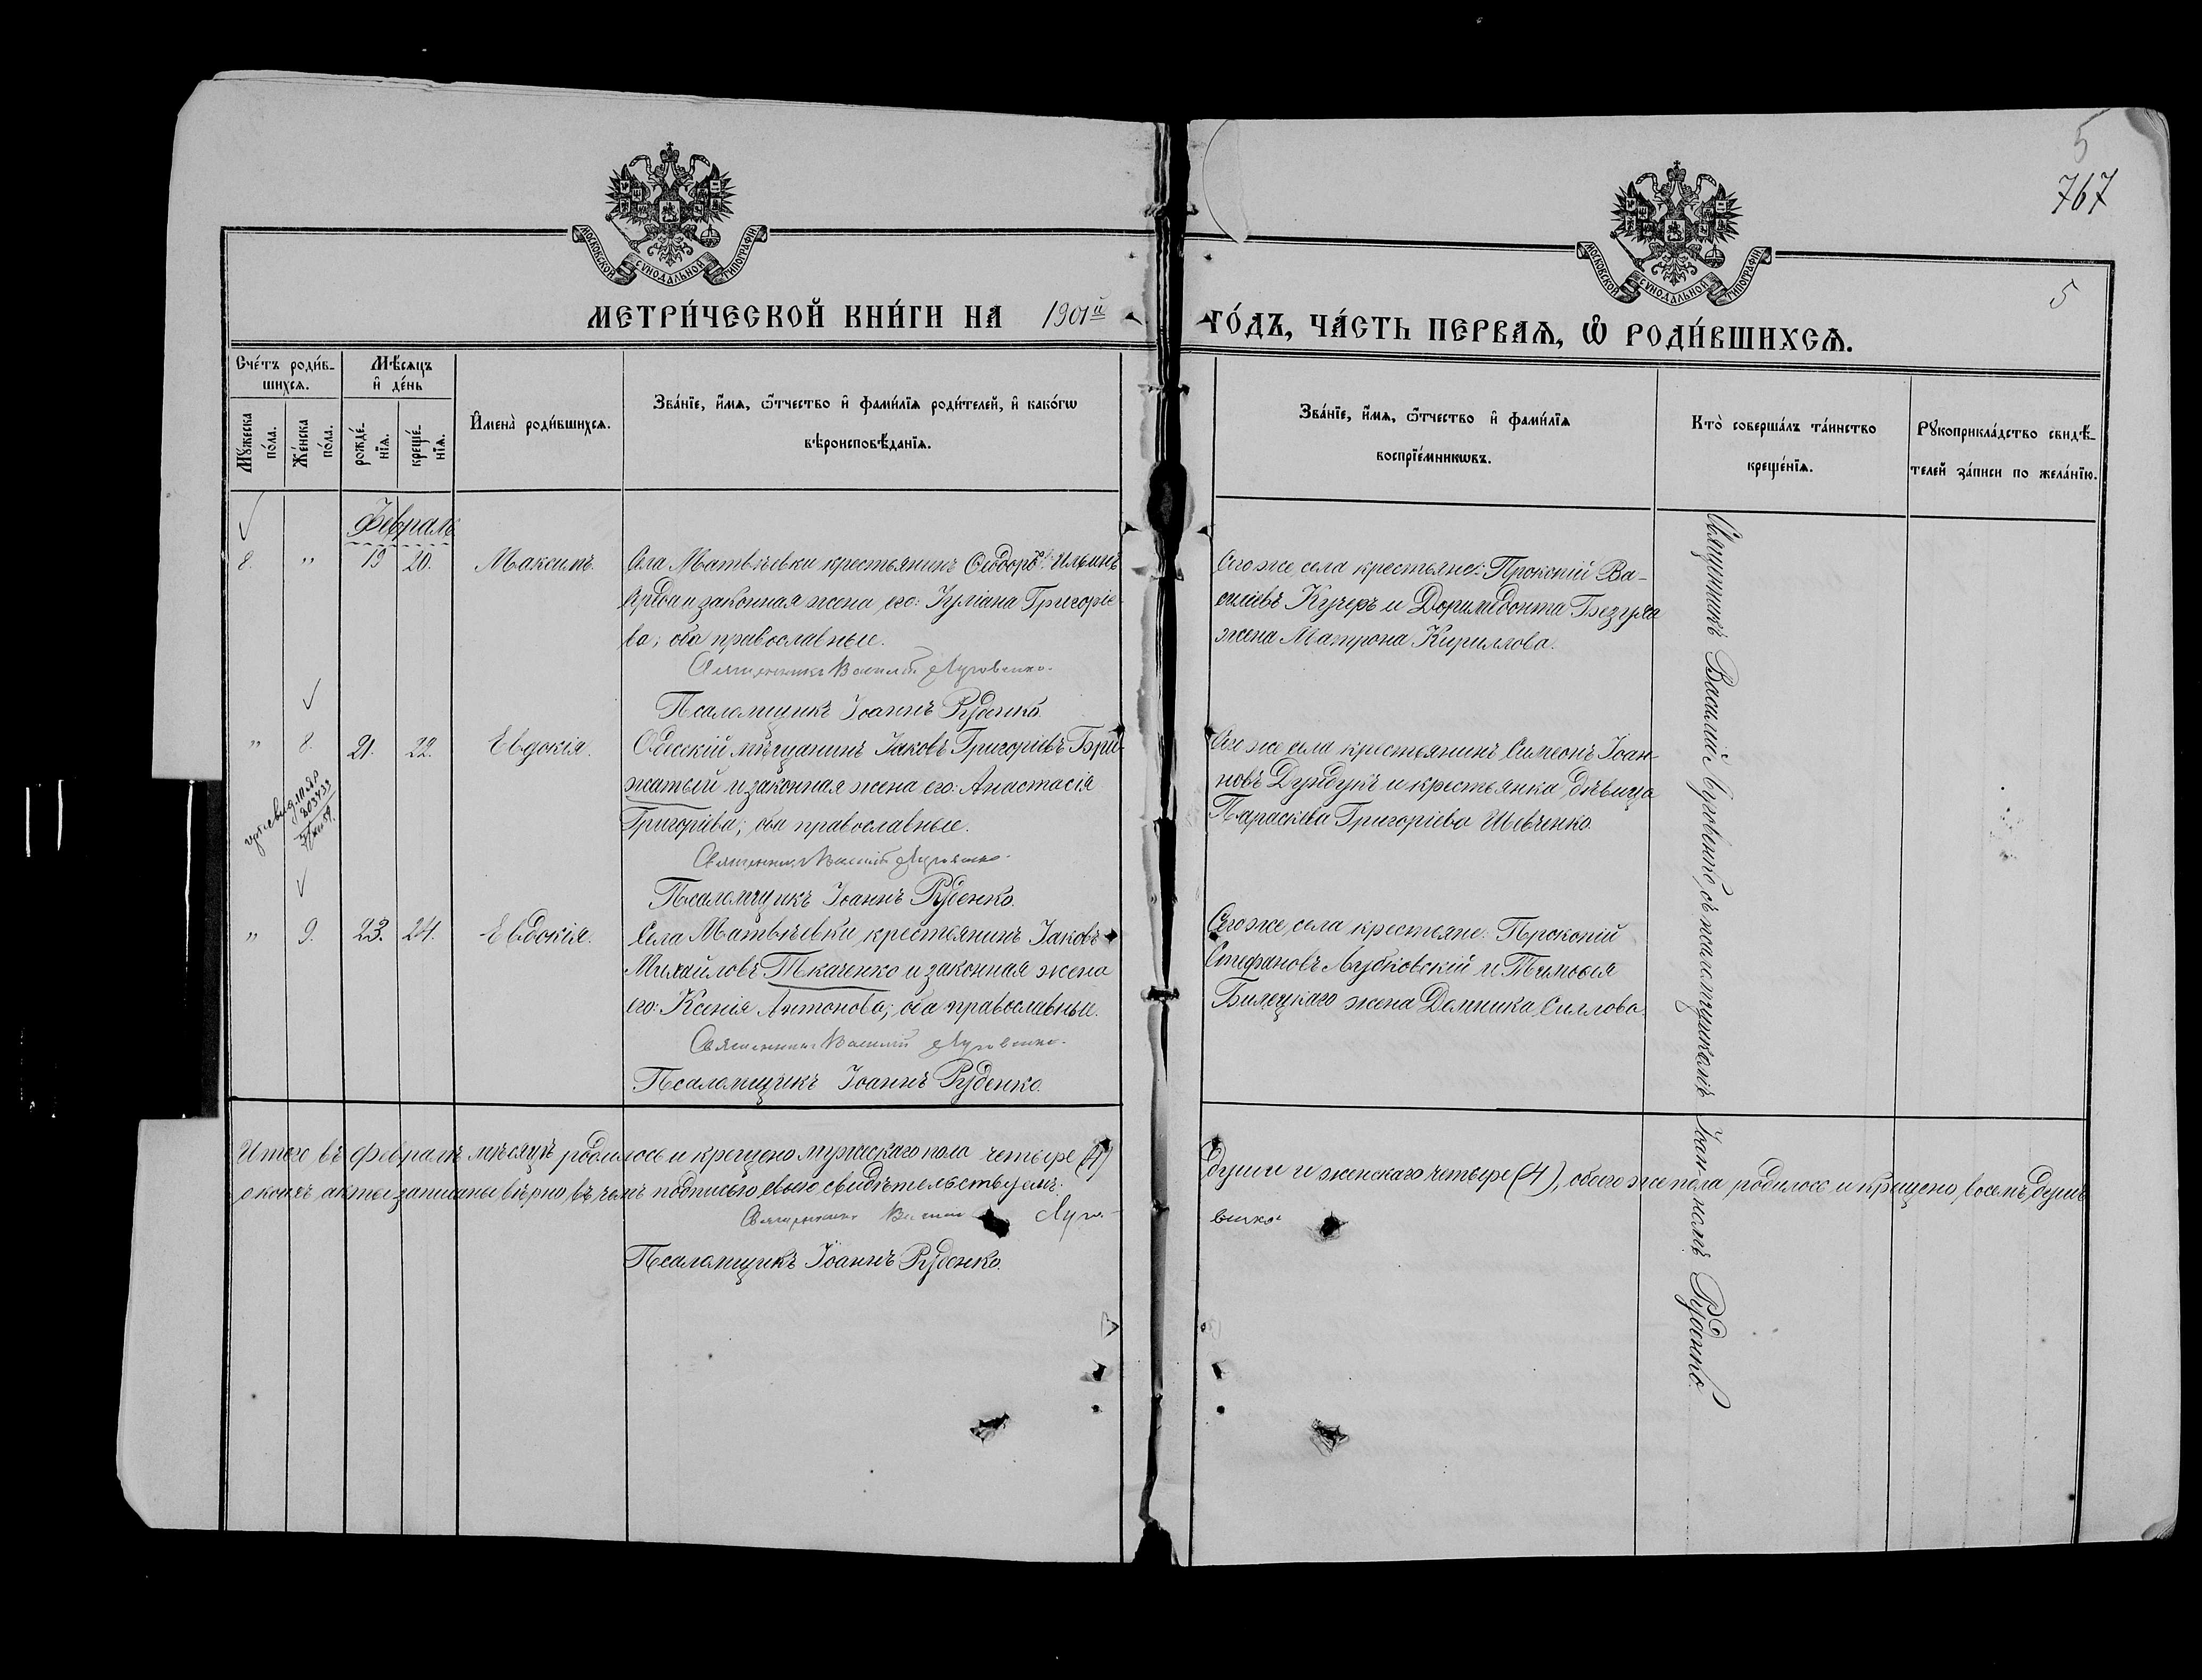 5
767
МОСКОВСКОЙ СѴНОДАЛЬНОЙ ТИПОГРАФІИ
МОСКОВСКОЙ СѴНОДАЛЬНОЙ ТИПОГРАФІИ
5
МЕТРИ́ЧЕСКОЙ КНИ́ГИ НА 1901й
ГО́ДЪ, ЧА́СТЬ ПЕРВАѦ, Ѽ РОДИ́ВШИХСѦ.
Сче́тъ роди́в-
шихсѧ.
Мꙋжеска
по́ла.
Же́нска
по́ла.
Мѣ́сѧцъ
и҆ де́нь
рожде́-
нїѧ.
креще́-
нїѧ.
И҆мена̀ роди́вшихсѧ.
Зва́нїе, и҆́мѧ, ѻ҆́тчество и҆ фами́лїѧ роди́телей, и҆ како́гѡ
вѣроисповѣ́данїѧ.
Зва́нїе, и҆́мѧ, ѻ҆́тчество и҆ фами́лїѧ
воспрїе́мникѡвъ.
Кто̀ соверша́лъ та́инство
креще́нїѧ.
Рꙋкоприкла́дство свидѣ́-
телей за́писи по жела́нїю.
Февраль
8. " 19 20. Максимъ.
Села Матвѣевки крестьянинъ Ѳеодоръ Ильинъ
и законная жена его: Іуліана Григоріе-
ва; оба православные.
Священникъ Василій Луговенко.
Псаломщикъ Іоаннъ Руденко.
Того же села крестьяне: Прокопій Ва-
силіевъ Кучеръ и Доримедонта Безугла
жена Матрона Кириллова.
" 8. 21. 22. Евдокія.
Одесскій мѣщанинъ Іаковъ Григоріевъ Бри-
жатый и законная жена его: Анастасія
Григоріева; оба православные.
Священникъ Василій Луговенко.
Псаломщикъ Іоаннъ Руденко.
Того же села крестьянинъ Симеонъ Іоан-
новъ Дундукъ и крестьянка дѣвица
Параскева Григоріева Шевченко.
203433
" 9. 23. 24. Евдокія.
Села Матвѣевки, крестьянинъ Іаковъ
Михайловъ Ткаченко и законная жена
его: Ксенія Антонова; оба православные.
Священникъ Василій Луговенко.
Псаломщикъ Іоаннъ Руденко.
Того же села крестьяне: Прокопій
Стефановъ Лубковскій и Тимоѳея
Билецкаго жена Домника Силлова.
Священникъ Василій Луговенко, съ псаломщикомъ Іоанномъ Руденко.
Итого въ февралѣ мѣсяцѣ родилось и крещено мужескаго пола четыре (4)
души и женскаго четыре (4), обоего же пола родилось и крещено восемь душъ
о коихъ акты записаны вѣрно, въ чемъ подписью своею свидѣтельствуемъ:
Священникъ Василій Луго-
венко.
Псаломщикъ Іоаннъ Руденко.